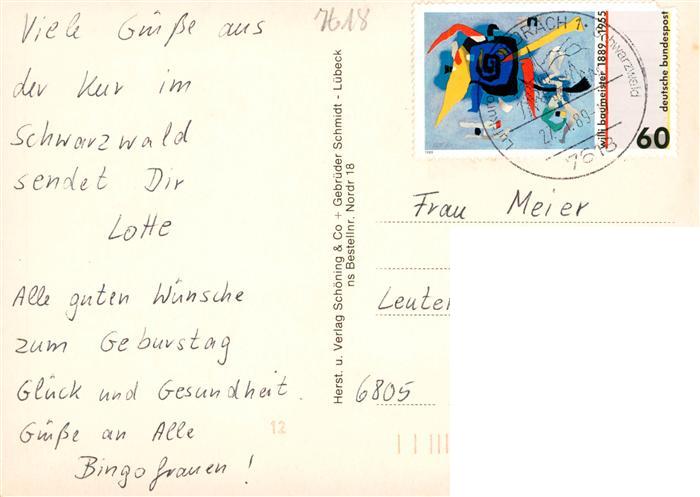 Viele Grüße aus
der Kur im
Schwarzwald
sendet Dir
Lotte
Alle guten Wünsche
zum Geburstag
Glück und Gesundheit.
Grüße an Alle
Bingofrauen!
12
7618
Herst. u. Verlag Schöning & Co + Gebrüder Schmidt - Lübeck
ns Bestellnr. Nordr 18
willi baumeister 1889-1955
deutsche bundespost
60
Schwarzwald
7618
Frau Meier
Leuter
6805